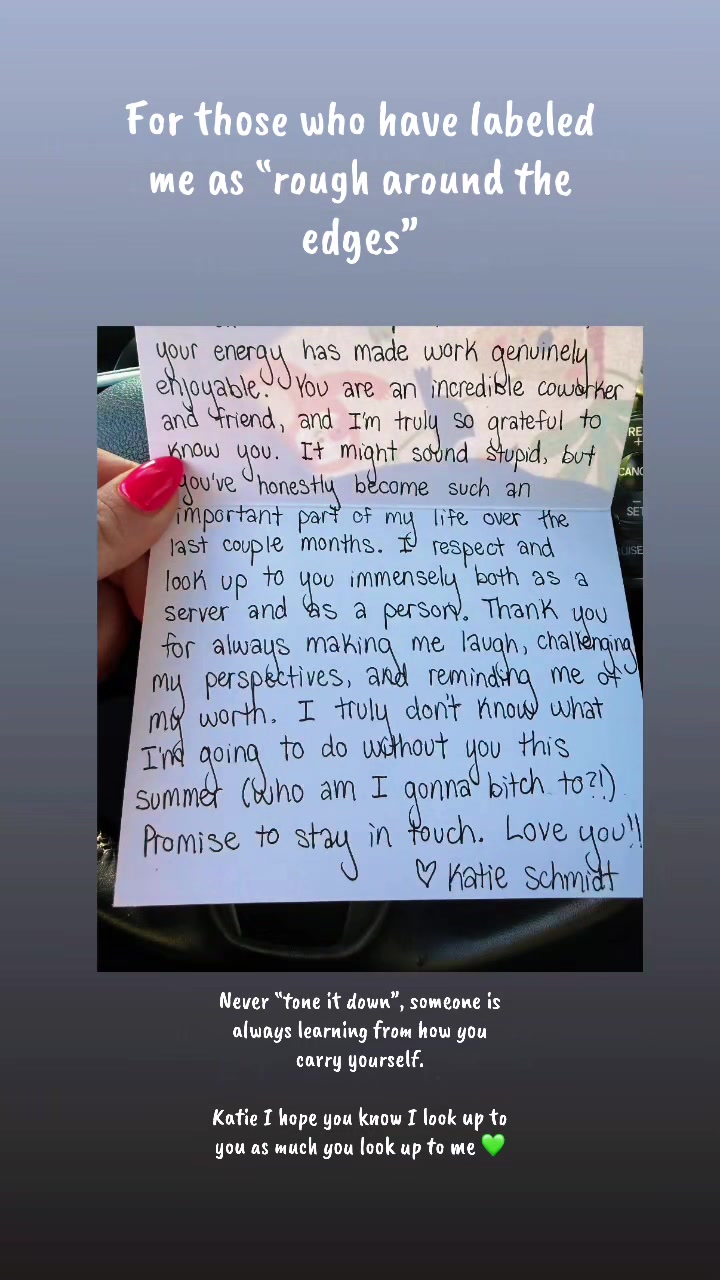 For those who have labeled
me as “rough around the
edges”
your energy has made work genuinely
enjoyable. You are an incredible coworker
and friend, and I'm truly so grateful to
know you. It might sound stupid, but
you've honestly become such an
important part of my life over the
last couple months. I respect and
look up to you immensely both as a
server and as a person. Thank you
for always making me laugh, challenging
my perspectives, and reminding me of
my worth. I truly don't know what
I'm going to do without you this
summer (who am I gonna bitch to?!)
Promise to stay in touch. Love you!!
♡ Katie Schmidt
RE
+
CANC
SET
UISE
Never “tone it down”, someone is
always learning from how you
carry yourself.
Katie I hope you know I look up to
you as much you look up to me 💚